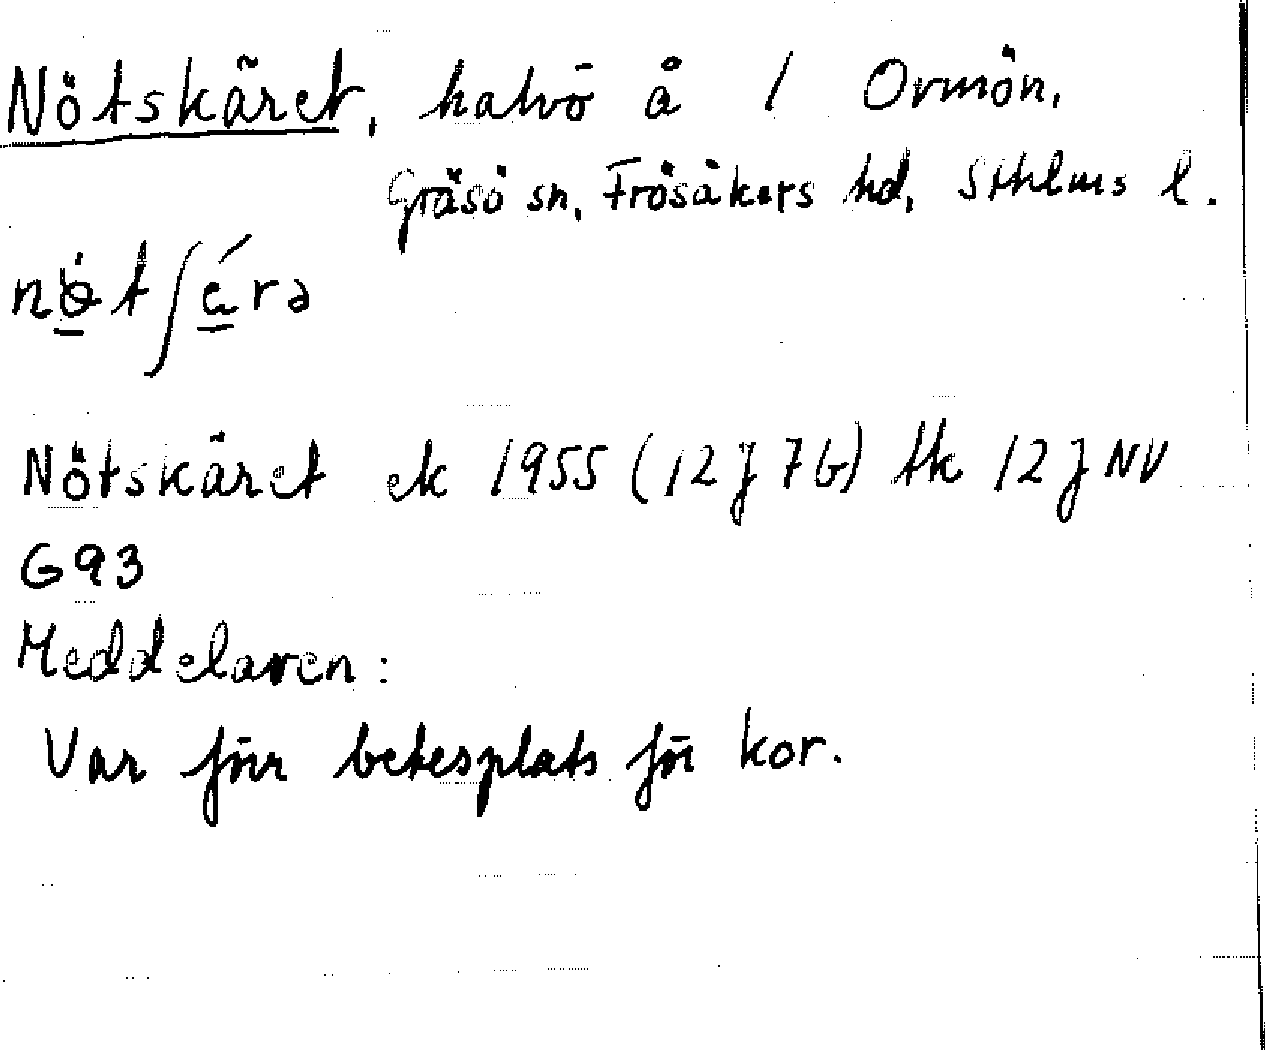 Nötskäret, halvö å 1 Ormön.
Gräsö sn, Frösåkers hd, Sthlms l.
Nötskäret ek 1955 (12 J 7 b) tk 12 J NV
G93
Meddelaren:
Var förr betesplats för kor.